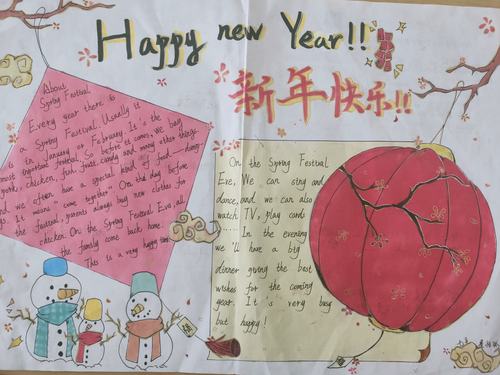 Happy new Year!!
新年快乐!!
About
Spring Festival
Every year there is
a Spring Festival. Usually is
in January or February. It's the
most important festival. So before it comes, we buy
pork, chicken, fish, fruits, candy and many other things.
And we often have a special kind of food — dump-
It means "come together". On the day before
the festival, parents always buy new clothes for
chicken. On the Spring Festival Eve, all
the family come back home.
This is a very happy
On the Spring Festival
Eve, We can sing and
dance, and we can also
watch TV, play cards
...... In the evening
we 'll have a big
dinner giving the best
wishes for the coming
year. It is very busy
but happy!